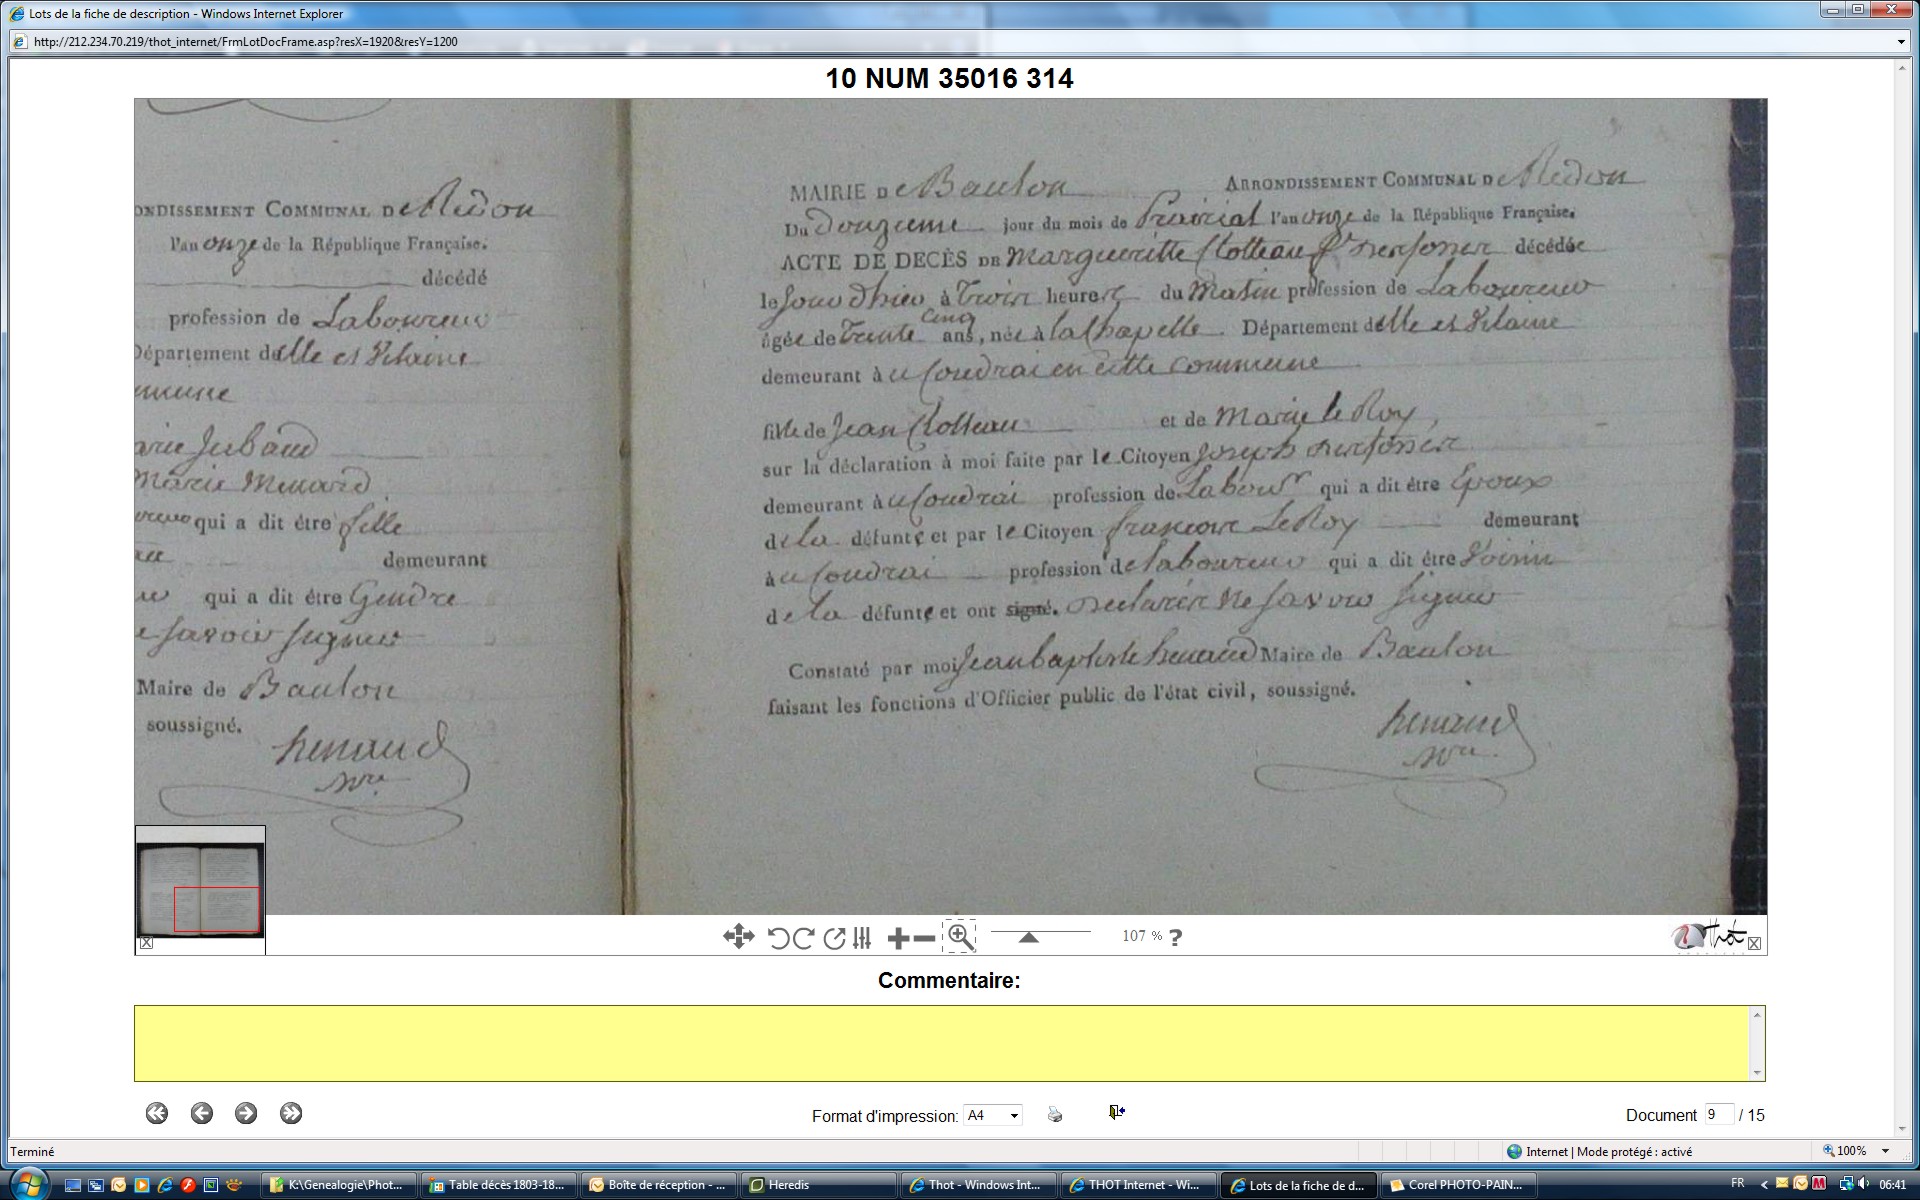 Lots de la fiche de description - Windows Internet Explorer
http://212.234.70.219/thot_internet/FrmLotDocFrame.asp?resX=1920&resY=1200
10 NUM 35016 314
ONDISSEMENT COMMUNAL De Redon
l'an onze de la République Française.
décédé
profession de Laboureur
Département d'ille et Vilaine
mmune
arie Jubaud
Marie Menard
qui a dit être fille
demeurant
qui a dit être Gendre
savoir signer
Maire de Baulon
soussigné.
henaud
MAIRIE De Baulon ARRONDISSEMENT COMMUNAL De Redon
Du Douzieme jour du mois de Prairial l'an onze de la République Française.
ACTE DE DECÈS DE Margueritte Clotteau décédée
le jour d'hier à Trois heures du Matin profession de Laboureur
âgée de Trente cinq ans, née à la Chapelle Département d'ille et Vilaine
demeurant à u Coudrai en cette commune
fille de Jean Clotteau et de Marie le Roy,
sur la déclaration à moi faite par le Citoyen Joseph
demeurant à u Coudrai profession de Labour qui a dit être Epoux
de la défunte et par le Citoyen francois Le Roy demeurant
à u Coudrai profession de laboureur qui a dit être Voisin
de la défunte et ont signé. Declarér Ne Savoir Signer
Constaté par moi Jean baptiste henaud Maire de Baulon
faisant les fonctions d'Officier public de l'état civil, soussigné.
henaud
107 % ?
Thot
Commentaire:
Format d'impression: A4
Document 9 / 15
Terminé
Internet | Mode protégé : activé
100%
K:\Genealogie\Phot...
Table décès 1803-18...
Boîte de réception - ...
Heredis
Thot - Windows Int...
THOT Internet - Wi...
Lots de la fiche de d...
Corel PHOTO-PAIN...
FR
06:41